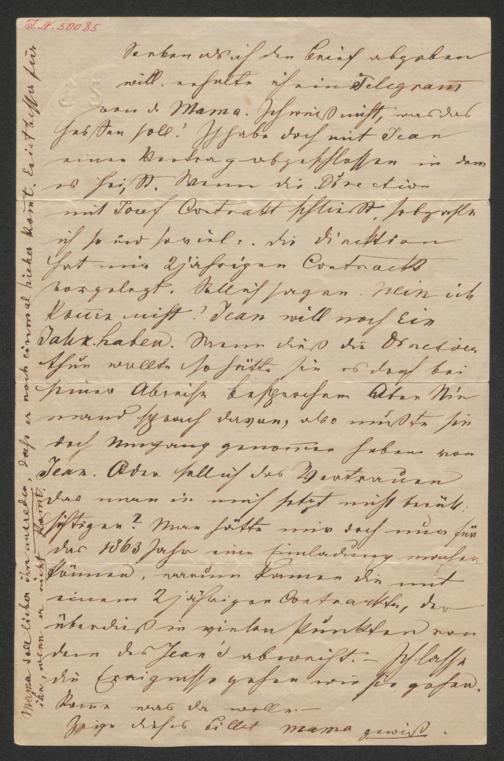 I. N. 50085
Soeben als ich den Brief abgeben
will, erhalte ich ein Telegram
von d. Mama. Ich weiß nicht, was das
heißen soll! Ich habe doch mit Jean
einen Vertrag abgeschlossen in dem
es heißt. Wenn die Direction
mit Josef Contrakt schließt, so bezahle
ich so und so viel. Die Direktion
hat mir 2jährigen Contrackt
vorgelegt. Soll ich sagen. Nein ich
kann nicht! Jean will noch Ein
Jahr haben. Wenn dieß die Direction
thun wollte so hätte sie es doch bei
seiner Abreise besprochen. Aber Nie
mand sprach davon, also mußte sie
doch Umgang genommen haben von
Jean. Oder soll ich das Vertrauen
das man in mich setzt nicht berück
sichtigen? Man hätte mir doch nur für
das 1863 Jahr eine Einladung machen
können, warum kamen die mit
einem 2jährigen Contrackte, der
überdieß in vielen Punkten von
dem des Jean's abweicht. – Ich lasse
die Ereignisse gehen wie sie gehen.
Kome was da wolle –
Zeige dieses Billet Mama gewiß.
Mama soll lieber ihm zureden, daß er noch einmal hieher komt. Es ist besser für
ihn wenn er nicht komt.